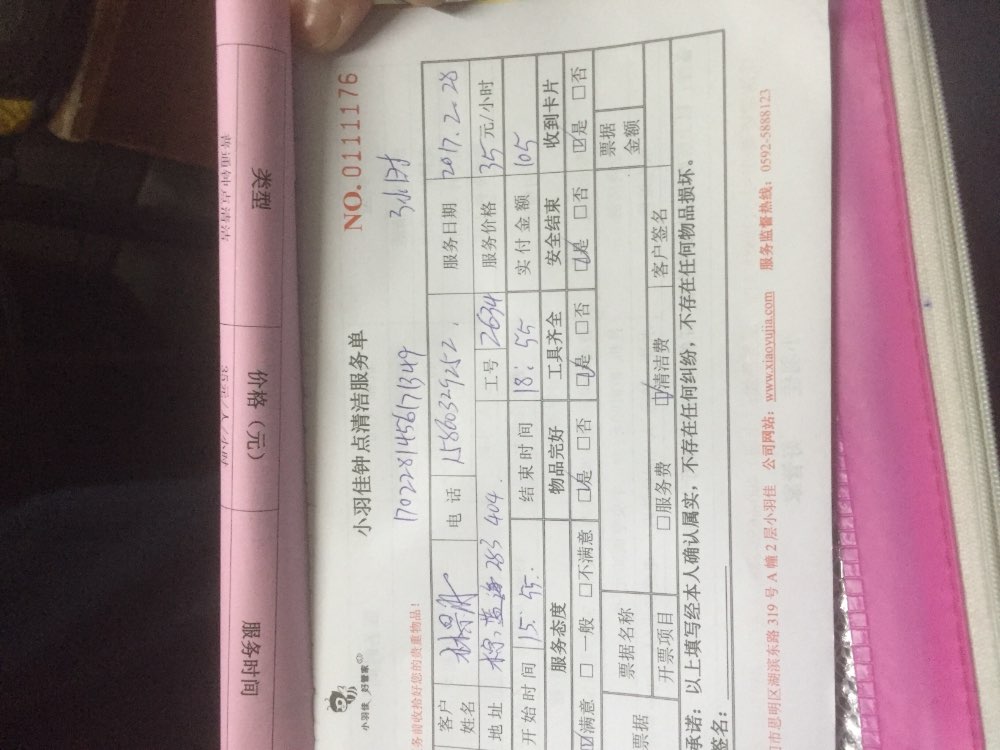 服务时间 价格（元） 类型
小羽佳 好管家
小羽佳钟点清洁服务单 NO.0111176
170228145617349 3小时
务前收拾好您的贵重物品！
客户姓名 电话 15860329252 服务日期 2017.2.28
地址 283 404 工号 2634 服务价格 35元/小时
开始时间 15:55 结束时间 18:55 实付金额 105
服务态度 物品完好 工具齐全 安全结束 收到卡片
☑满意 □一般 □不满意 ☑是 □否 ☑是 □否 ☑是 □否 ☑是 □否
票据 票据名称 票据金额
开票项目 □服务费 ☑清洁费 客户签名
承诺：以上填写经本人确认属实，不存在任何纠纷，不存在任何物品损坏。
签名：
门市思明区湖滨东路319号A幢2层小羽佳 公司网站：www.xiaoyujia.com 服务监督热线：0592-5888123